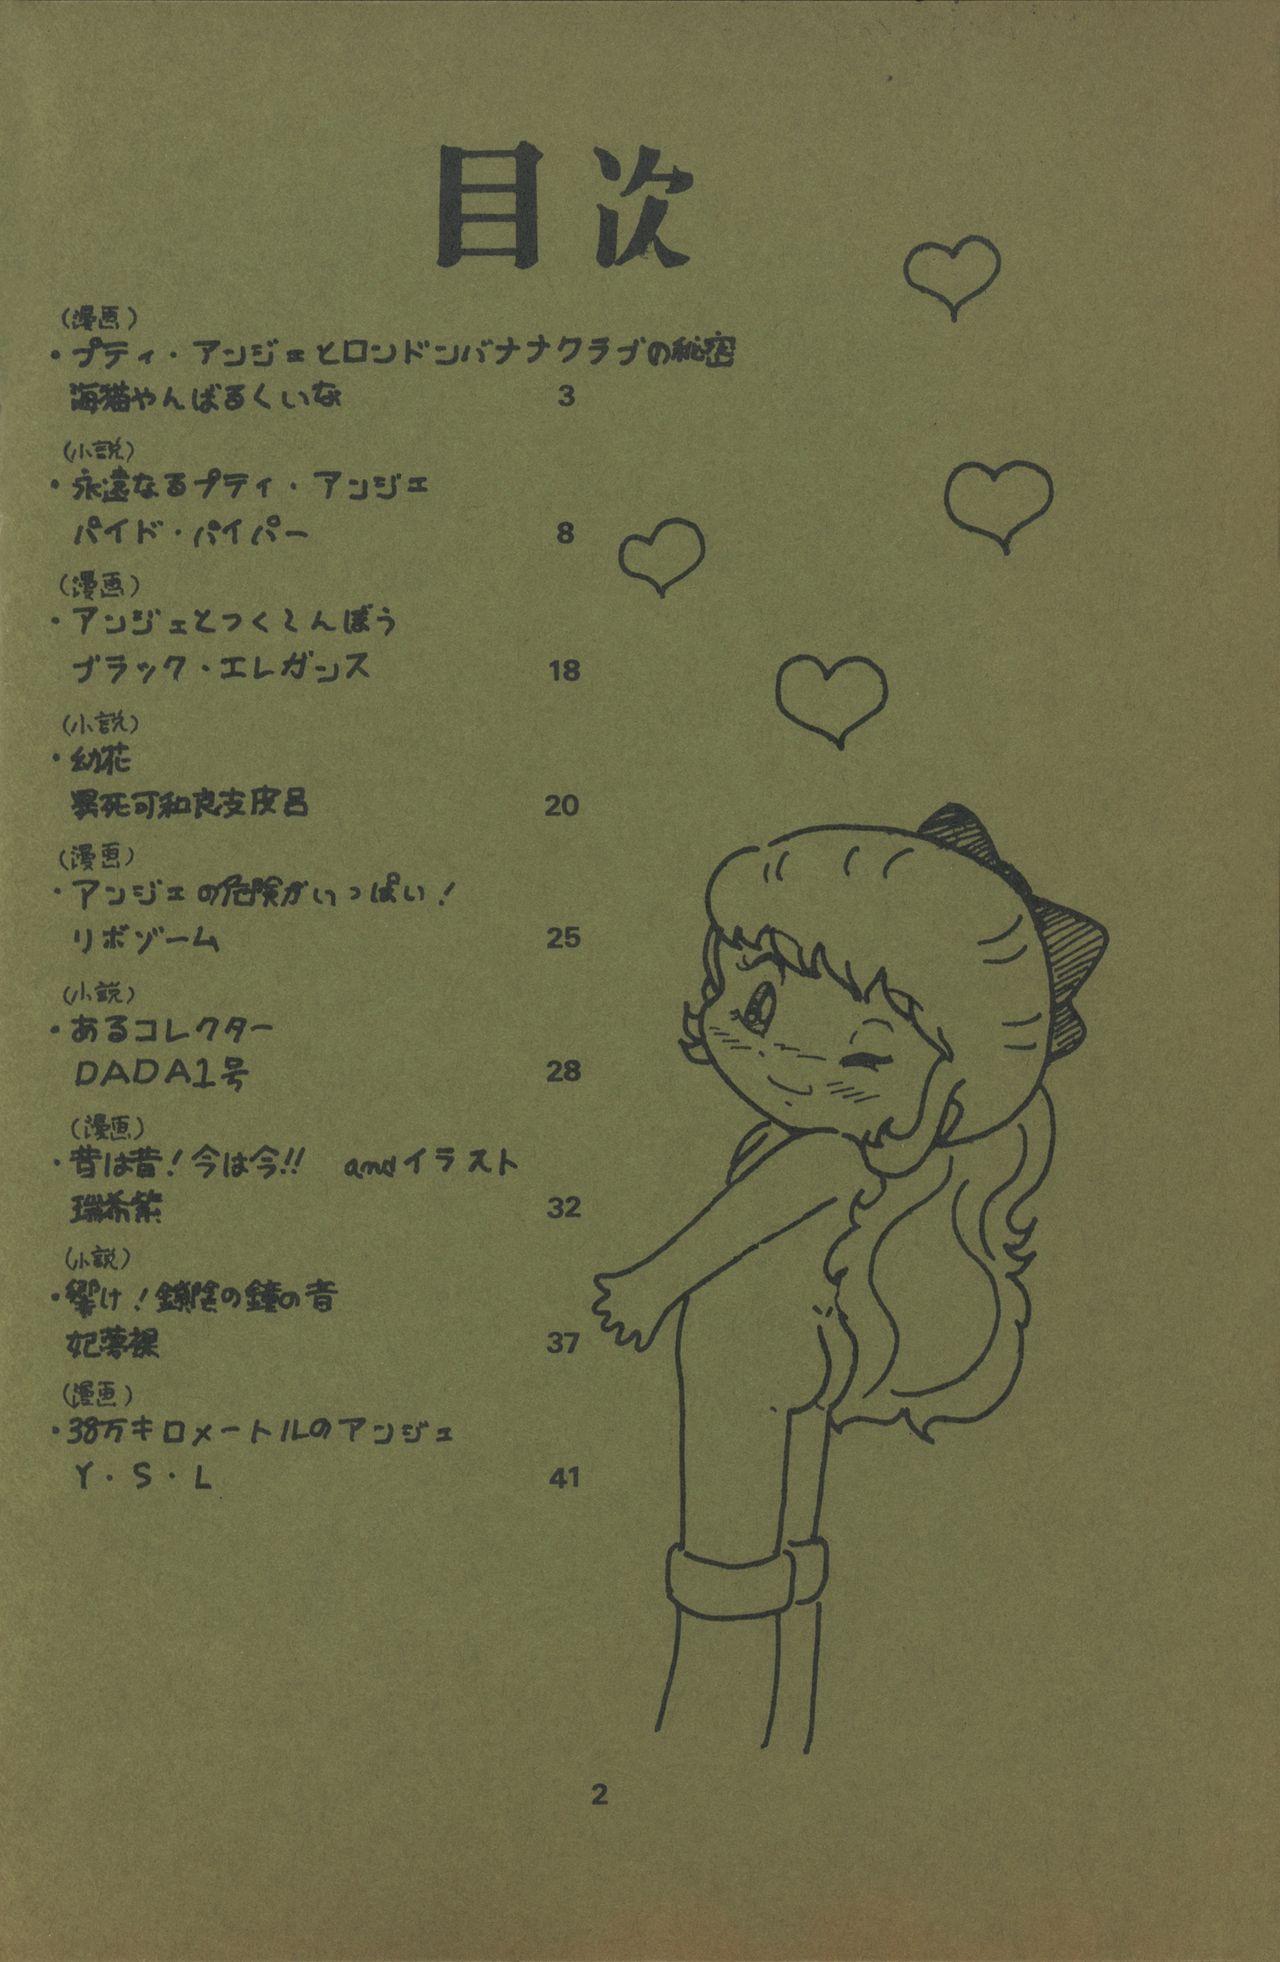 目次
(漫画)
・プティ・アンジェとロンドンバナナクラブの秘密
海猫やんばるくいな 3
(小説)
・永遠なるプティ・アンジェ
パイド・パイパー 8
(漫画)
・アンジェとつくしんぼう
ブラック・エレガンス 18
(小説)
・幼花
異死可和良支皮呂 20
(漫画)
・アンジェの危険がいっぱい!
リボゾーム 25
(小説)
・あるコレクター
DADA1号 28
(漫画)
・昔は昔!今は今!! andイラスト
瑞希紫 32
(小説)
・響け!鎖陰の鐘の音
妃夢裸 37
(漫画)
・38万キロメートルのアンジェ
Y・S・L 41
2